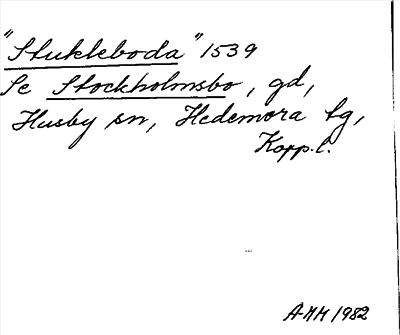 "Stukleboda" 1539
Se Stockholmsbo, gd,
Husby sn, Hedemora tg,
Kopp.l.
AMM 1982